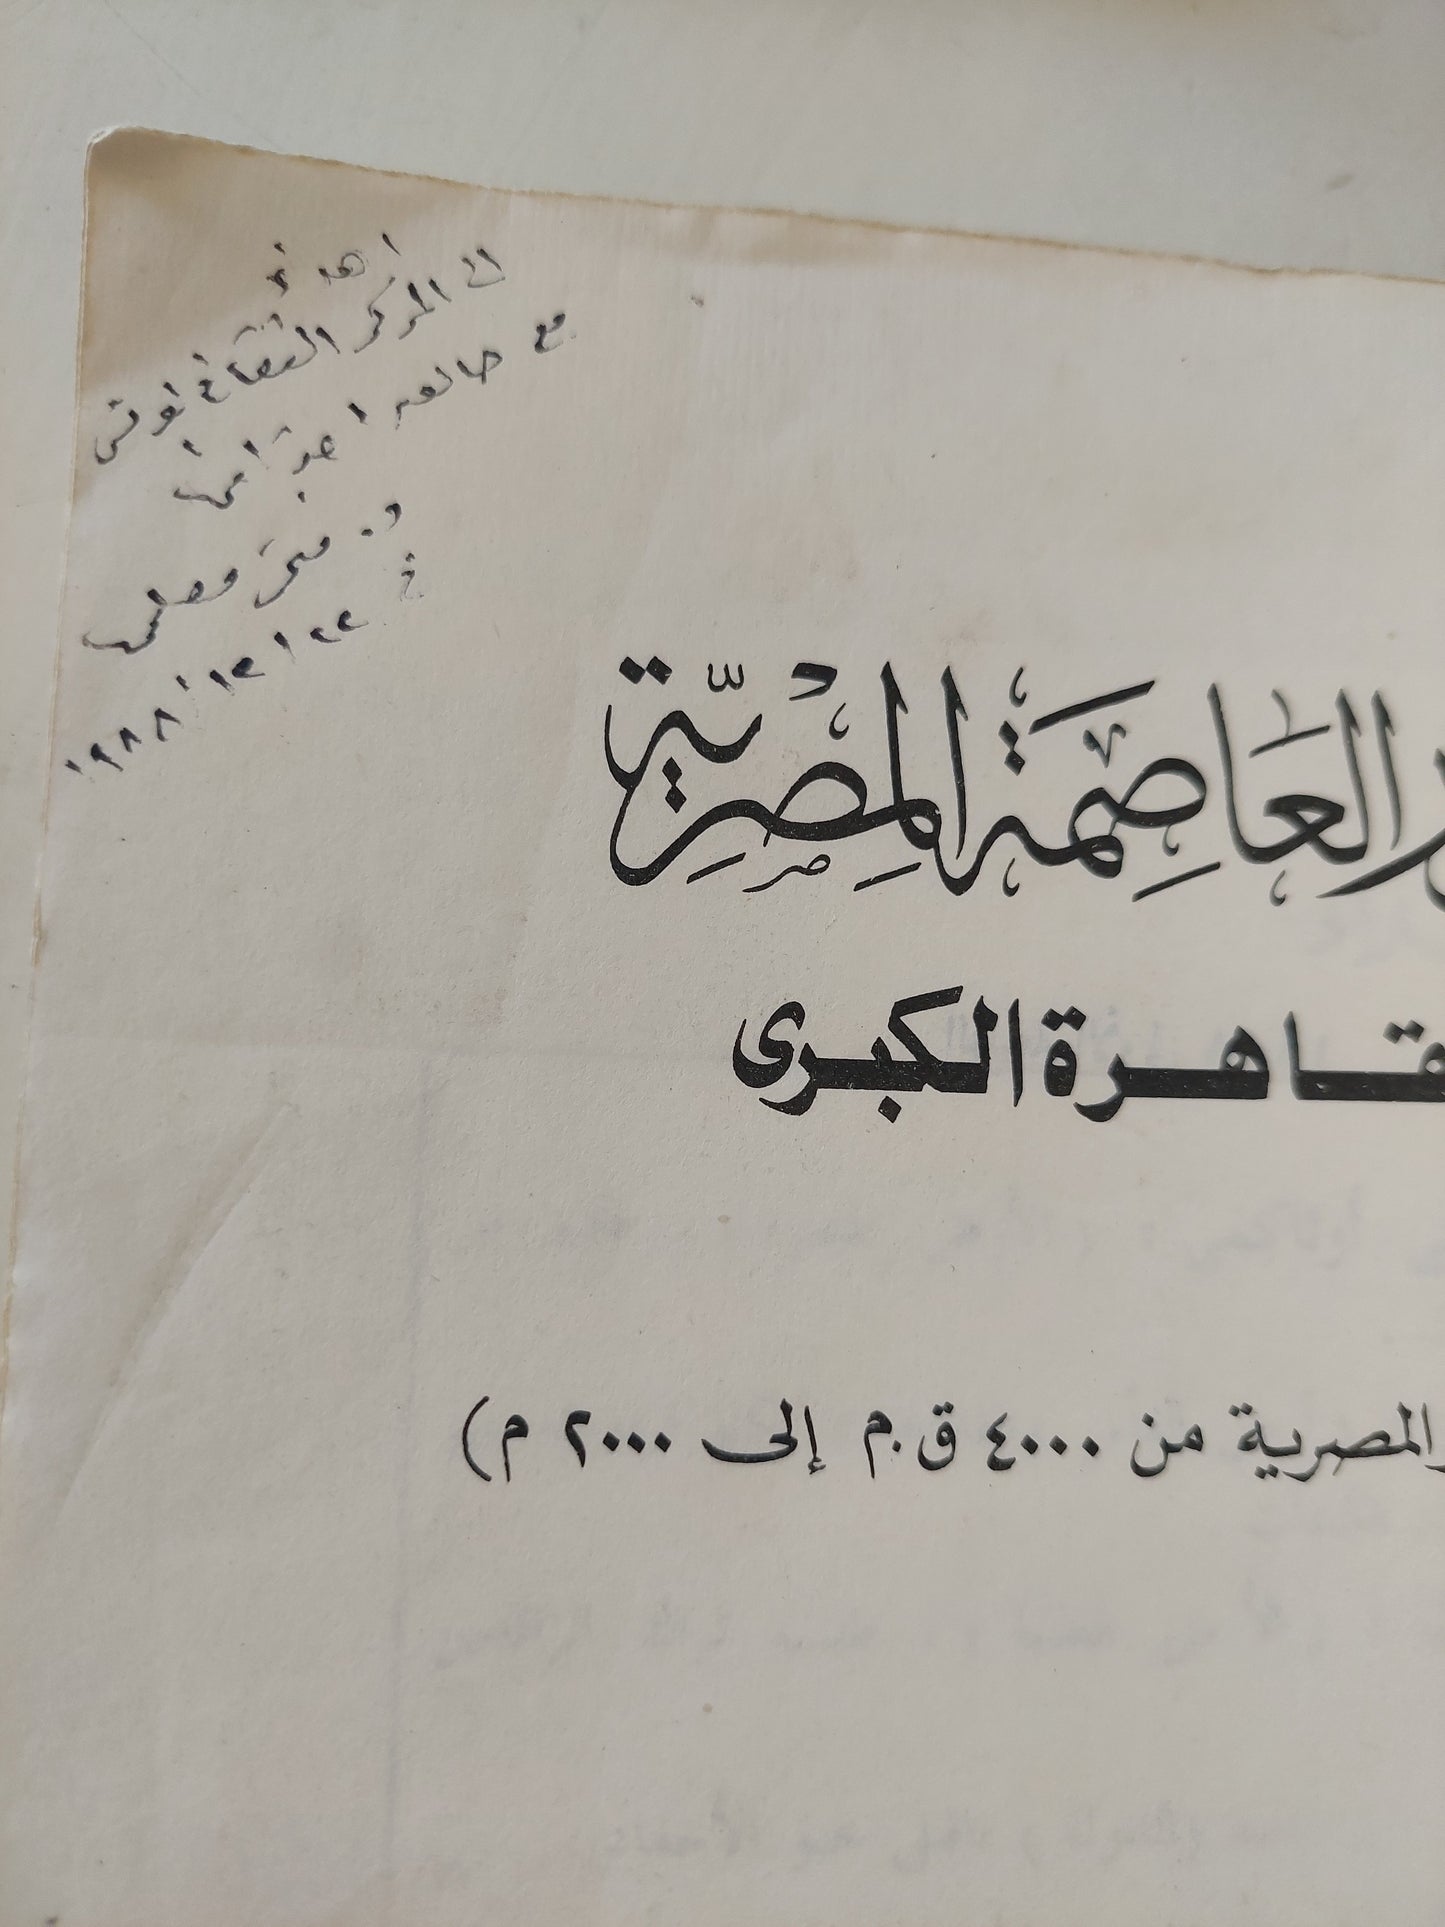 إهداء
إلى المركز الثقافي
مع خالص احترامي
د. فتحي مصيلحي
في ٢٢ / ١٢ / ١٩٨٨
العاصمة المصرية
القاهرة الكبرى
المصرية من ٤٠٠٠ ق.م إلى ٢٠٠٠ م)